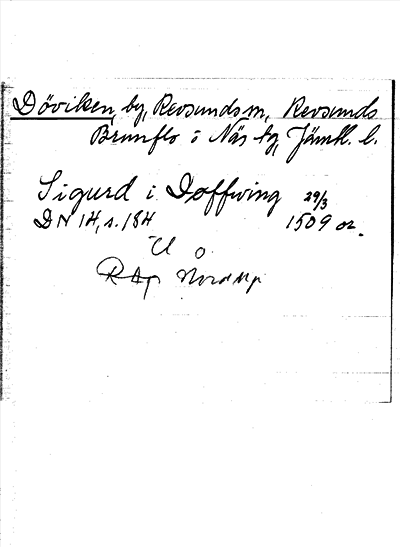 Döviken, by, Revsunds sn, Revsunds
Brunflo o Näs tg, Jämtl. l.
Sigurd i Doffwing 29/3
DN 14, s. 184 1509 or.
U O
RAp Nord Mp